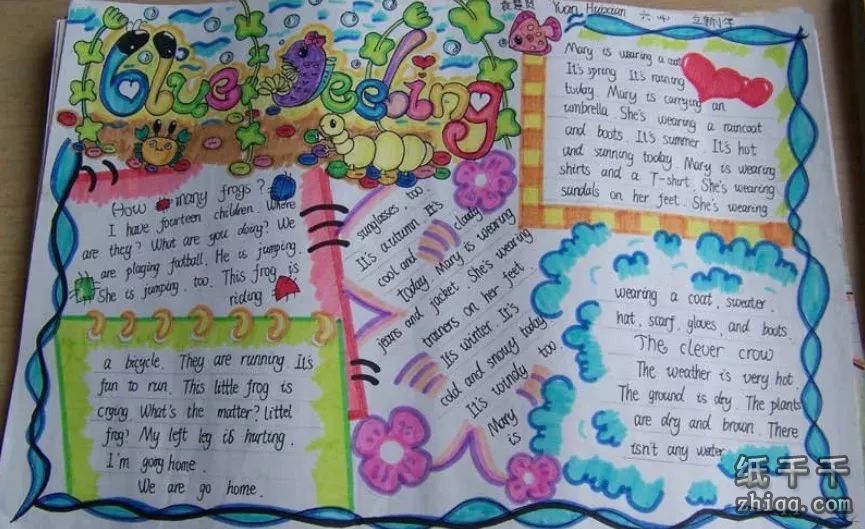 Yuan Huixuan 六 立新小学
Blue Feeling
How many frogs?
I have fourteen children. Where
are they? What are you doing? We
are plaging football. He is jumping.
She is jumping, too. This frog is
riding
a bicycle. They are running. It's
fun to run. This little frog is
crging. What's the matter? littel
frog? My left leg is hurting.
I'm going home.
We are go home.
Mary is wearing a coat
It's spring It's raining
today. Mary is carrying an
umbrella. She's wearing a raincoat
and boots It's summer. It's hot
and sunning today. Mary is wearing
shirts and a T-shirt. She's wearing
sandals on her feet. She's wearing
sunglasses too.
It's autumn It's
cool and cloudy
today. Mary is wearing
jeans and jacket. She's wearing
trainers on her feet.
It's winter. It's
cold and snowy today.
It's windy too
Mary
is
wearing a coat, sweater,
hat, scarf, gloves, and boots.
The clever crow
The weather is very hot.
The ground is dry. The plants
are dry and brown. There
isn't any water
纸千千
zhiqq.com